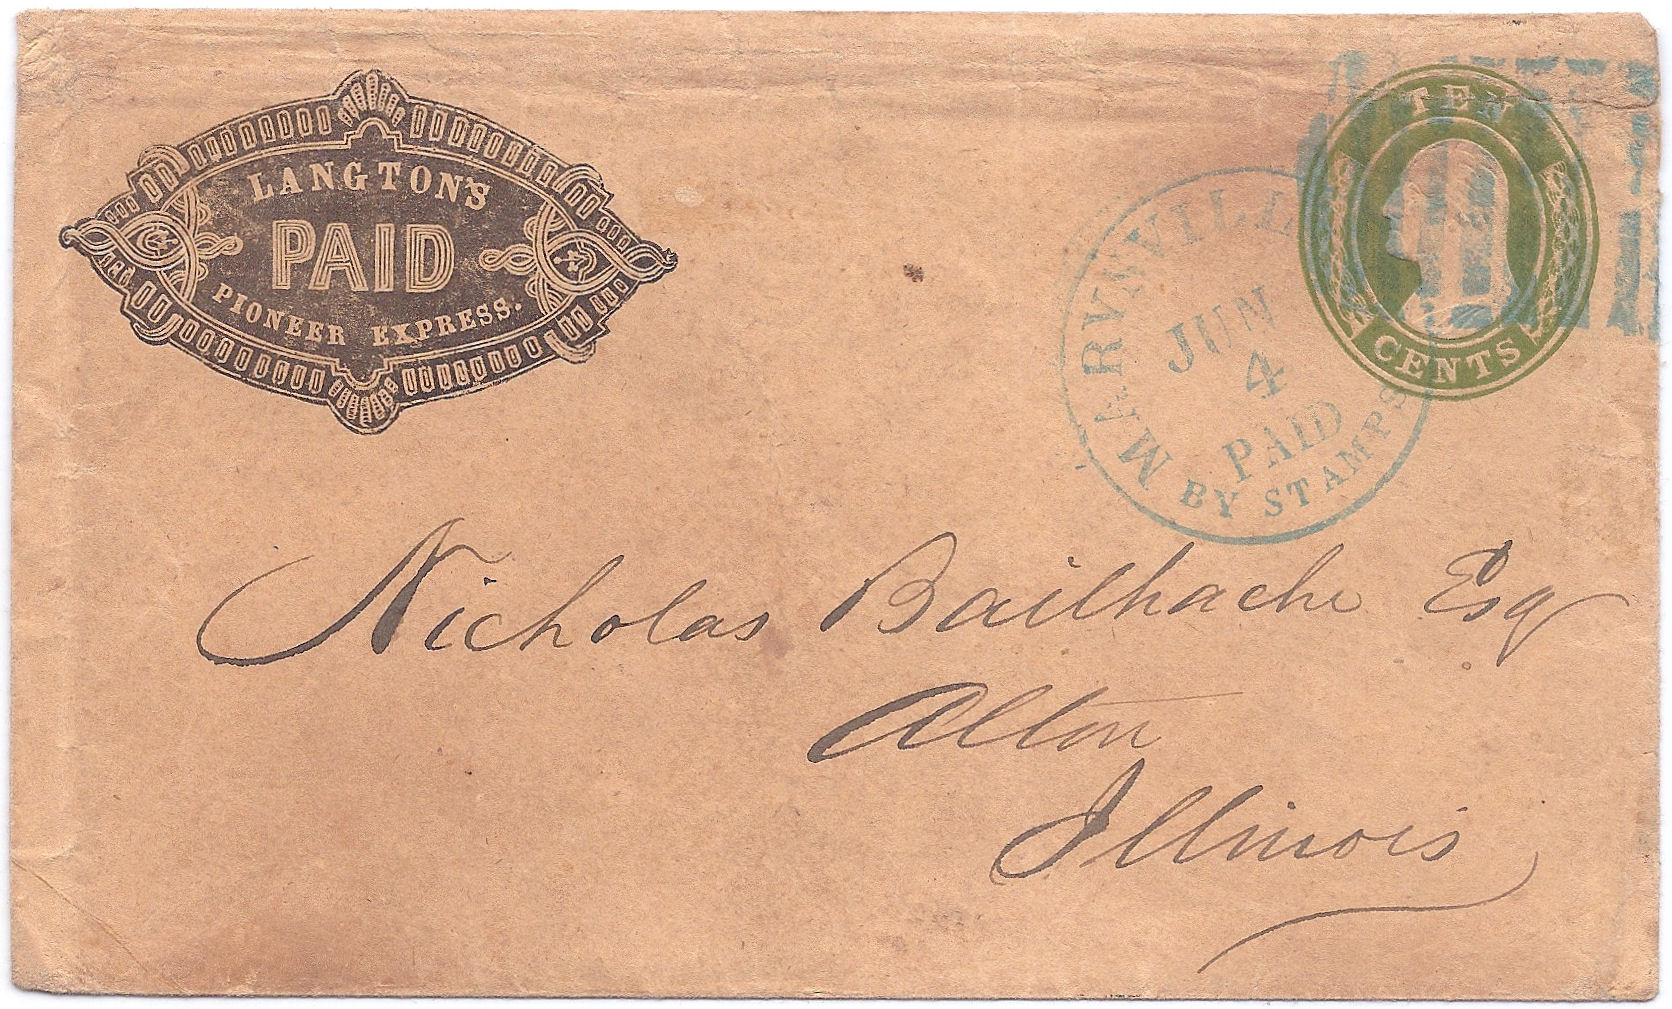 LANGTON'S
PAID
PIONEER EXPRESS.
TEN
CENTS
MARYSVILL
JUN
4
PAID
BY STAMPS
Nicholas Bailhache Esq
Alton
Illinois